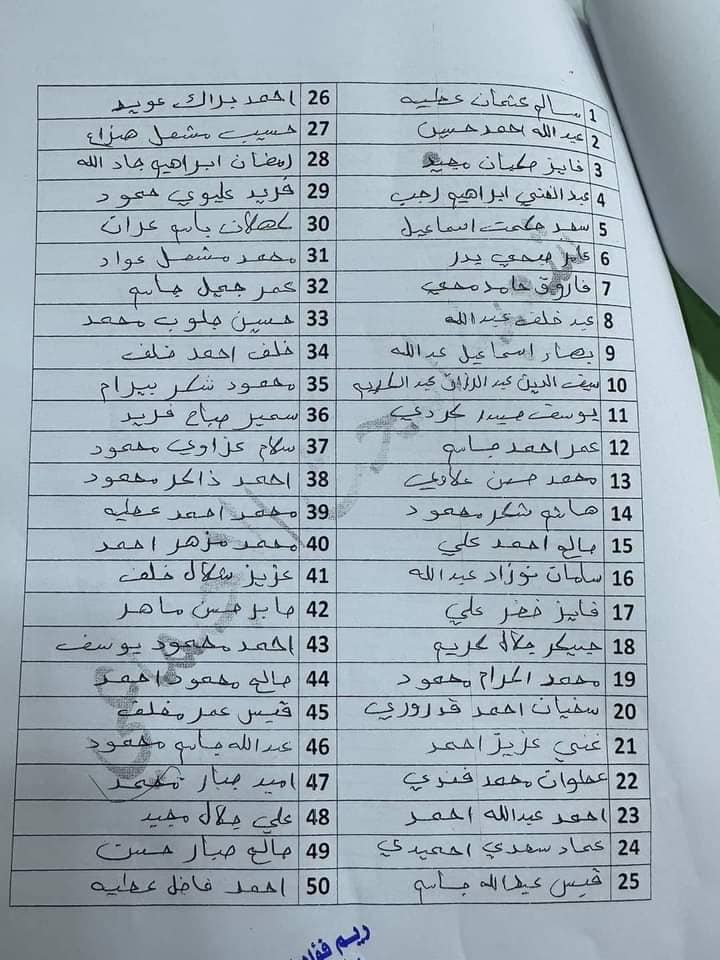 1 سالم عثمان عطيه
2 عبدالله احمد حسين
3 فايز مجيد
4 عبدالغني ابراهيم رجب
5 سعد حكمت اسماعيل
6 عامر صبحي بدر
7 فاروق حامد محي
8 عيد خلف عبدالله
9 بهار اسماعيل عبدالله
10 سيف الدين عبد الرزاق عبد الكريم
11 يوسف حيدر كردي
12 عمر احمد جاسم
13 محمد حسن علاوي
14 هاشم شكر محمود
15 صالح احمد علي
16 سلمان نوزاد عبدالله
17 فايز خضر علي
18 جلال كريم
19 محمد اكرام محمود
20 سفيان احمد قدروري
21 غني عزيز احمد
22 عطوان محمد فندي
23 احمد عبدالله احمد
24 عماد سعدي احميدي
25 قيس عبدالله جاسم
26 احمد براك عويد
27 حسيب مشعل هزاع
28 رمضان ابراهيم جاد الله
29 فريد عليوي حمود
30 كهلان ياسر
31 محمد مشعل عواد
32 عمر جميل جاسم
33 حسين جلوب محمد
34 خلف احمد خلف
35 محمود شكر بيرام
36 سمير صباح فريد
37 سلام عزاوي محمود
38 احمد ذاكر محمود
39 محمد احمد عطيه
40 محمد مزهر احمد
41 عزيز هلال خلف
42 صابر حسن ماهر
43 احمد محمود يوسف
44 صالح محمود احمد
45 قيس عمر مخلف
46 عبدالله جاسم محمود
47 اميد جبار محمد
48 علي جلال مجيد
49 صالح جبار حسن
50 احمد فاضل عطيه
ريم فؤاد